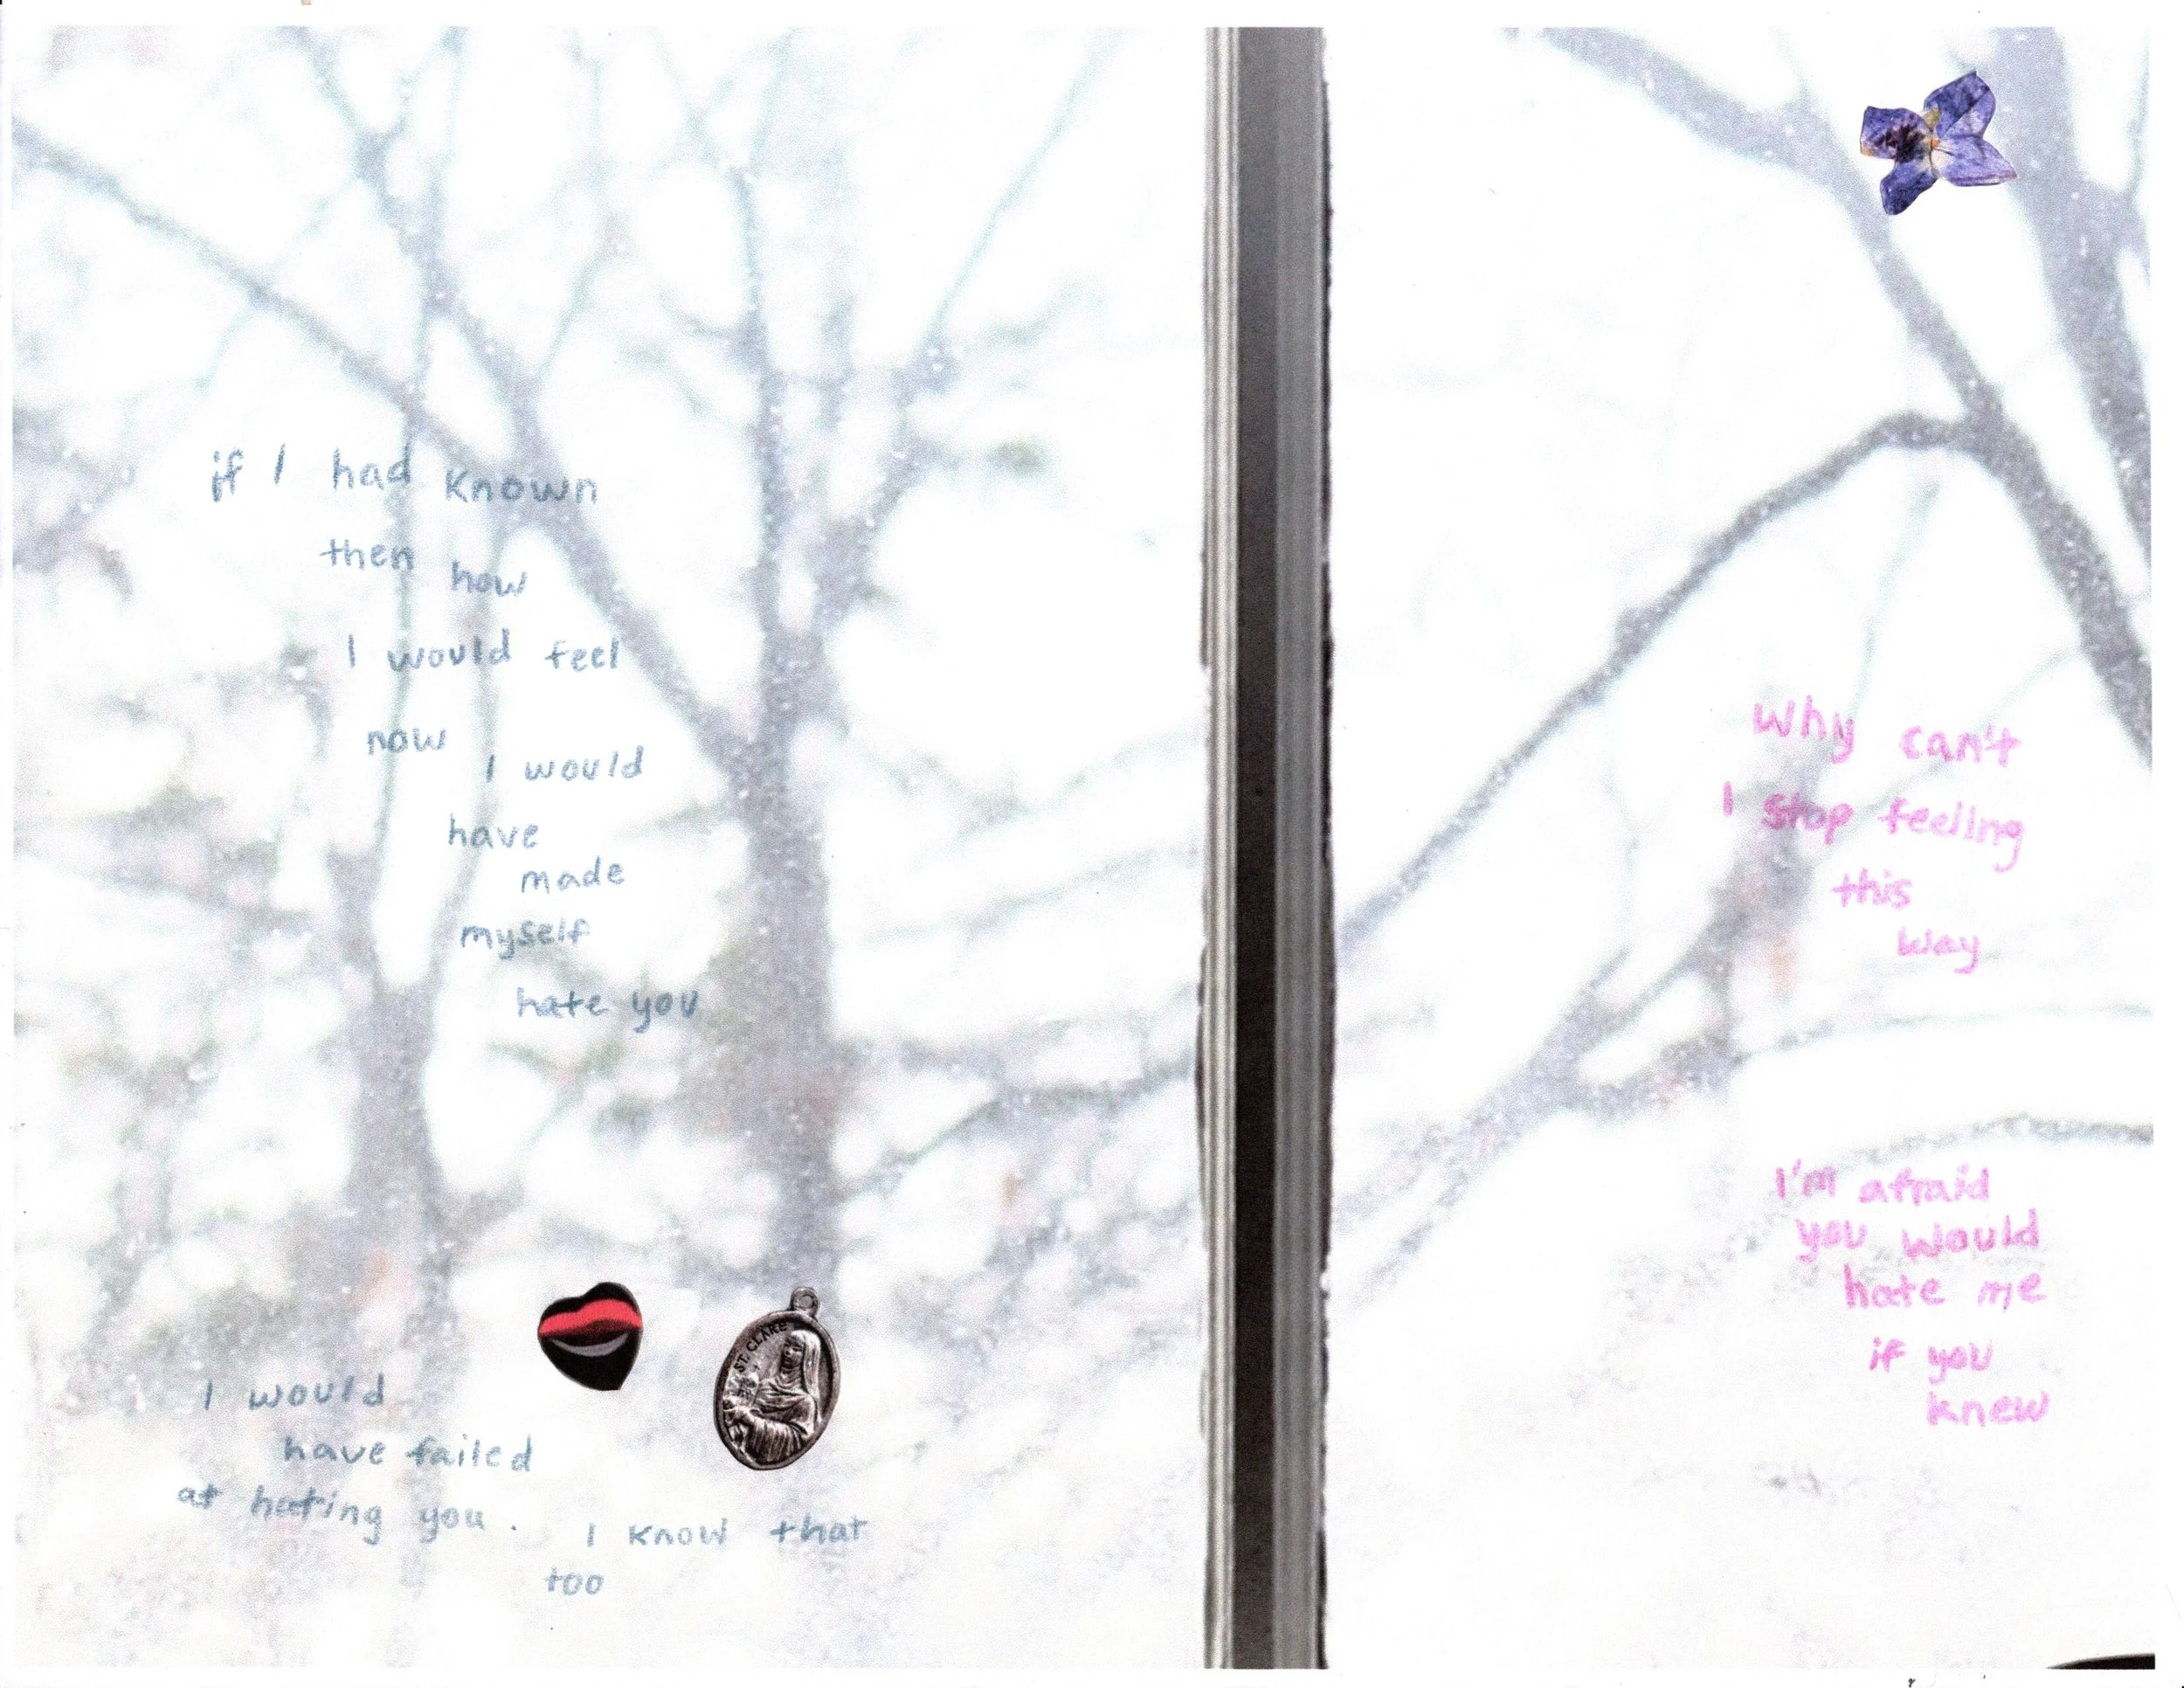 if I had known
then how
I would feel
now
I would
have
made
myself
hate you
ST. CLARE
I would
have failed
at hating you.
I know that
too
Why can't
I stop feeling
this
way
I'm afraid
you would
hate me
if you
knew